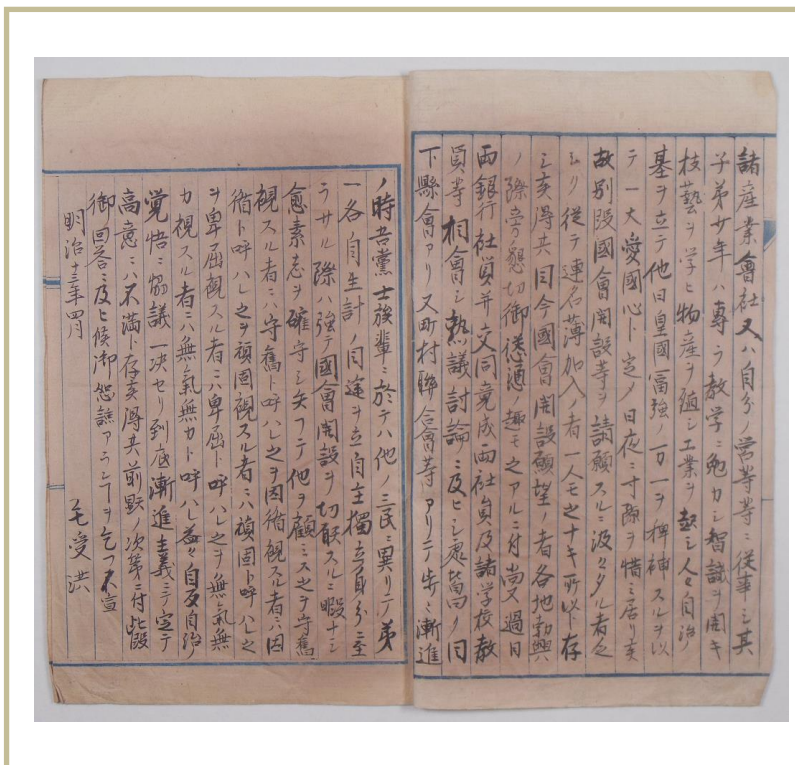 諸産業會社又ハ自分ノ営等等ニ従事シ其
子弟廿年ハ専ラ教学ニ勉カシ智識ヲ開キ
枝藝ヲ学ヒ物産ヲ殖シ工業ヲ起シ人々自治ノ
基ヲ立テ他日皇國冨強ノ万一ヲ稗補スルヲ以
テ一大愛國心ト定メ日夜ニ寸隙ヲ惜ミ居リ実
故別段國會開設等ヲ請願スルニ汲々タル者之
ナリ従テ連名薄加入ノ者一人モ之ナキ所以ト存
シ実得共目今國會開設願望ノ者各地勃興
ノ際旁懇切御慫通ノ趣モ之アルニ付尚又過日
両銀行社員并交同竟成両社員及諸学校教
員等相會シ熟議討論ニ及ヒシ處皆曰ク目
下縣會アリ又町村聯合會等アリテ歩ミ漸進
ノ時吾黨士族輩ニ於テハ他ノ三民ニ異リテ第
一各自生計ノ目途ヲ立自主獨立ノ身分ニ至
ラサル際ハ強テ國會開設ヲ切取スルニ暇ナシ
愈素志ヲ確守シ矢フテ他ヲ顧ミス之テ守舊
視スル者ニハ守舊ト呼ハレ之ヲ因循視スル者ニハ因
循ト呼ハレ之ヲ頑固視スル者ニハ頑固ト呼ハレ之
ヲ卑屈視スル者ニハ卑屈ト呼ハレ之ヲ無氣無
力視スル者ニハ無氣無力ト呼ハレ益々自反自治ノ
覚悟ニ協議一决セリ到底漸進主義ニテ定テ
高意ニハ不満ト存実得共前顕ノ次第ニ付此段
御回答ニ及ヒ候御恕譙アランヿヲ乞フ不宣
明治十三年四月
毛受洪